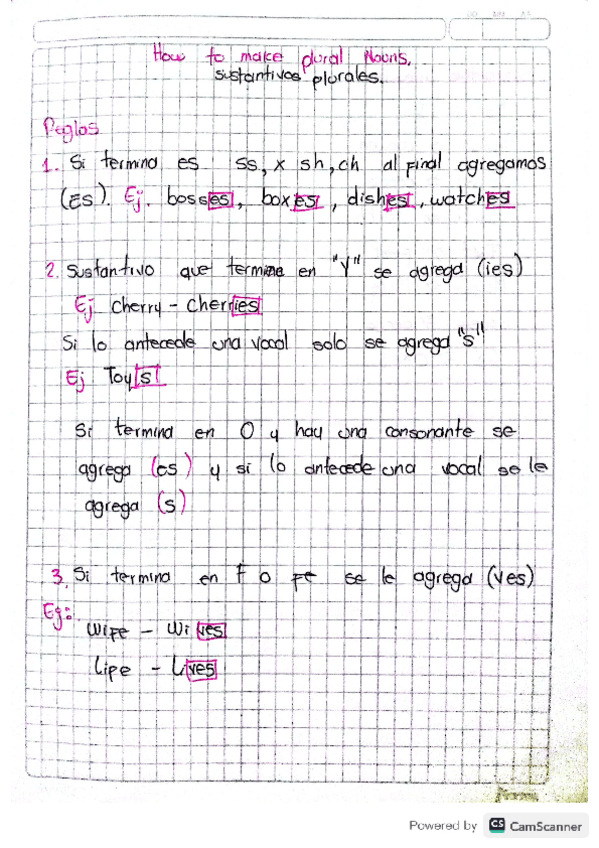 How to make plural Nouns.
sustantivos plurales.
Reglas
1. Si termina es ss, x sh, ch al final agregamos
(Es). Ej. bosses, boxes, dishes, watches
2. Sustantivo que termine en "Y" se agrega (ies)
Ej Cherry - Cherries
Si lo antecede una vocal solo se agrega "s"
Ej Toys
Si termina en O y hay una consonante se
agrega (es) y si lo antecede una vocal se le
agrega (s)
3. Si termina en f o fe se le agrega (ves)
Eg:
Wife - Wives
Lipe - Lives
Powered by CS CamScanner